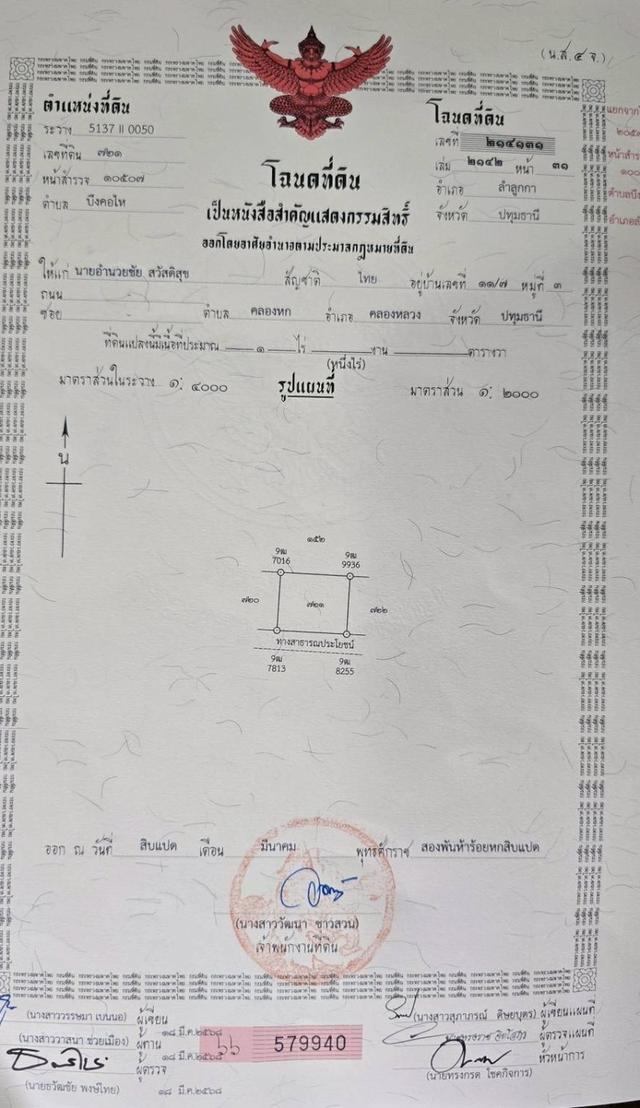 (น.ส.๔ จ.)
ตำแหน่งที่ดิน
ระวาง 5137 II 0050
เลขที่ดิน ๗๒๑
หน้าสำรวจ ๑๐๕๐๗
ตำบล บึงคอไห
โฉนดที่ดิน
เลขที่ ๒๑๔๑๓๑
เล่ม ๒๑๔๒ หน้า ๓๑
อำเภอ ลำลูกกา
จังหวัด ปทุมธานี
แยกจาก
หน้าสำร
ตำบลบึง
โฉนดที่ดิน
เป็นหนังสือสำคัญแสดงกรรมสิทธิ์
ออกโดยอาศัยอำนาจตามประมวลกฎหมายที่ดิน
ให้แก่ นายอำนวยชัย สวัสดิสุข สัญชาติ ไทย อยู่บ้านเลขที่ ๑๑/๗ หมู่ที่ ๓
ถนน
ซอย - ตำบล คลองหก อำเภอ คลองหลวง จังหวัด ปทุมธานี
ที่ดินแปลงนี้มีเนื้อที่ประมาณ ๑ ไร่ งาน ตารางวา
(หนึ่งไร่)
มาตราส่วนในระวาง ๑: ๔๐๐๐ รูปแผนที่ มาตราส่วน ๑: ๒๐๐๐
น
๑๕๒
9ฒ 7016
9ฒ 9936
๗๒๐ ๗๒๑ ๗๒๒
ทางสาธารณประโยชน์
9ฒ 7813
9ฒ 8255
ออก ณ วันที่ สิบแปด เดือน มีนาคม พุทธศักราช สองพันห้าร้อยหกสิบแปด
(นางสาววัฒนา ชาวสวน)
เจ้าพนักงานที่ดิน
(นางสาววรรษมา เบนนอ) ผู้เขียน
๑๘ มี.ค.๒๕๖๘
(นางสาววาสนา ช่วยเมือง) ผู้ทาน
๑๘ มี.ค.๒๕๖๘
ผู้ตรวจ
(นายธวัฒชัย พงษ์ไทย) ๑๘ มี.ค.๒๕๖๘
579940
(นางสาวสุภาภรณ์ ดิษยบุตร) ผู้เขียนแผนที่
ผู้ตรวจแผนที่
หัวหน้าการ
(นายทรงกรด โชคกิจการ)